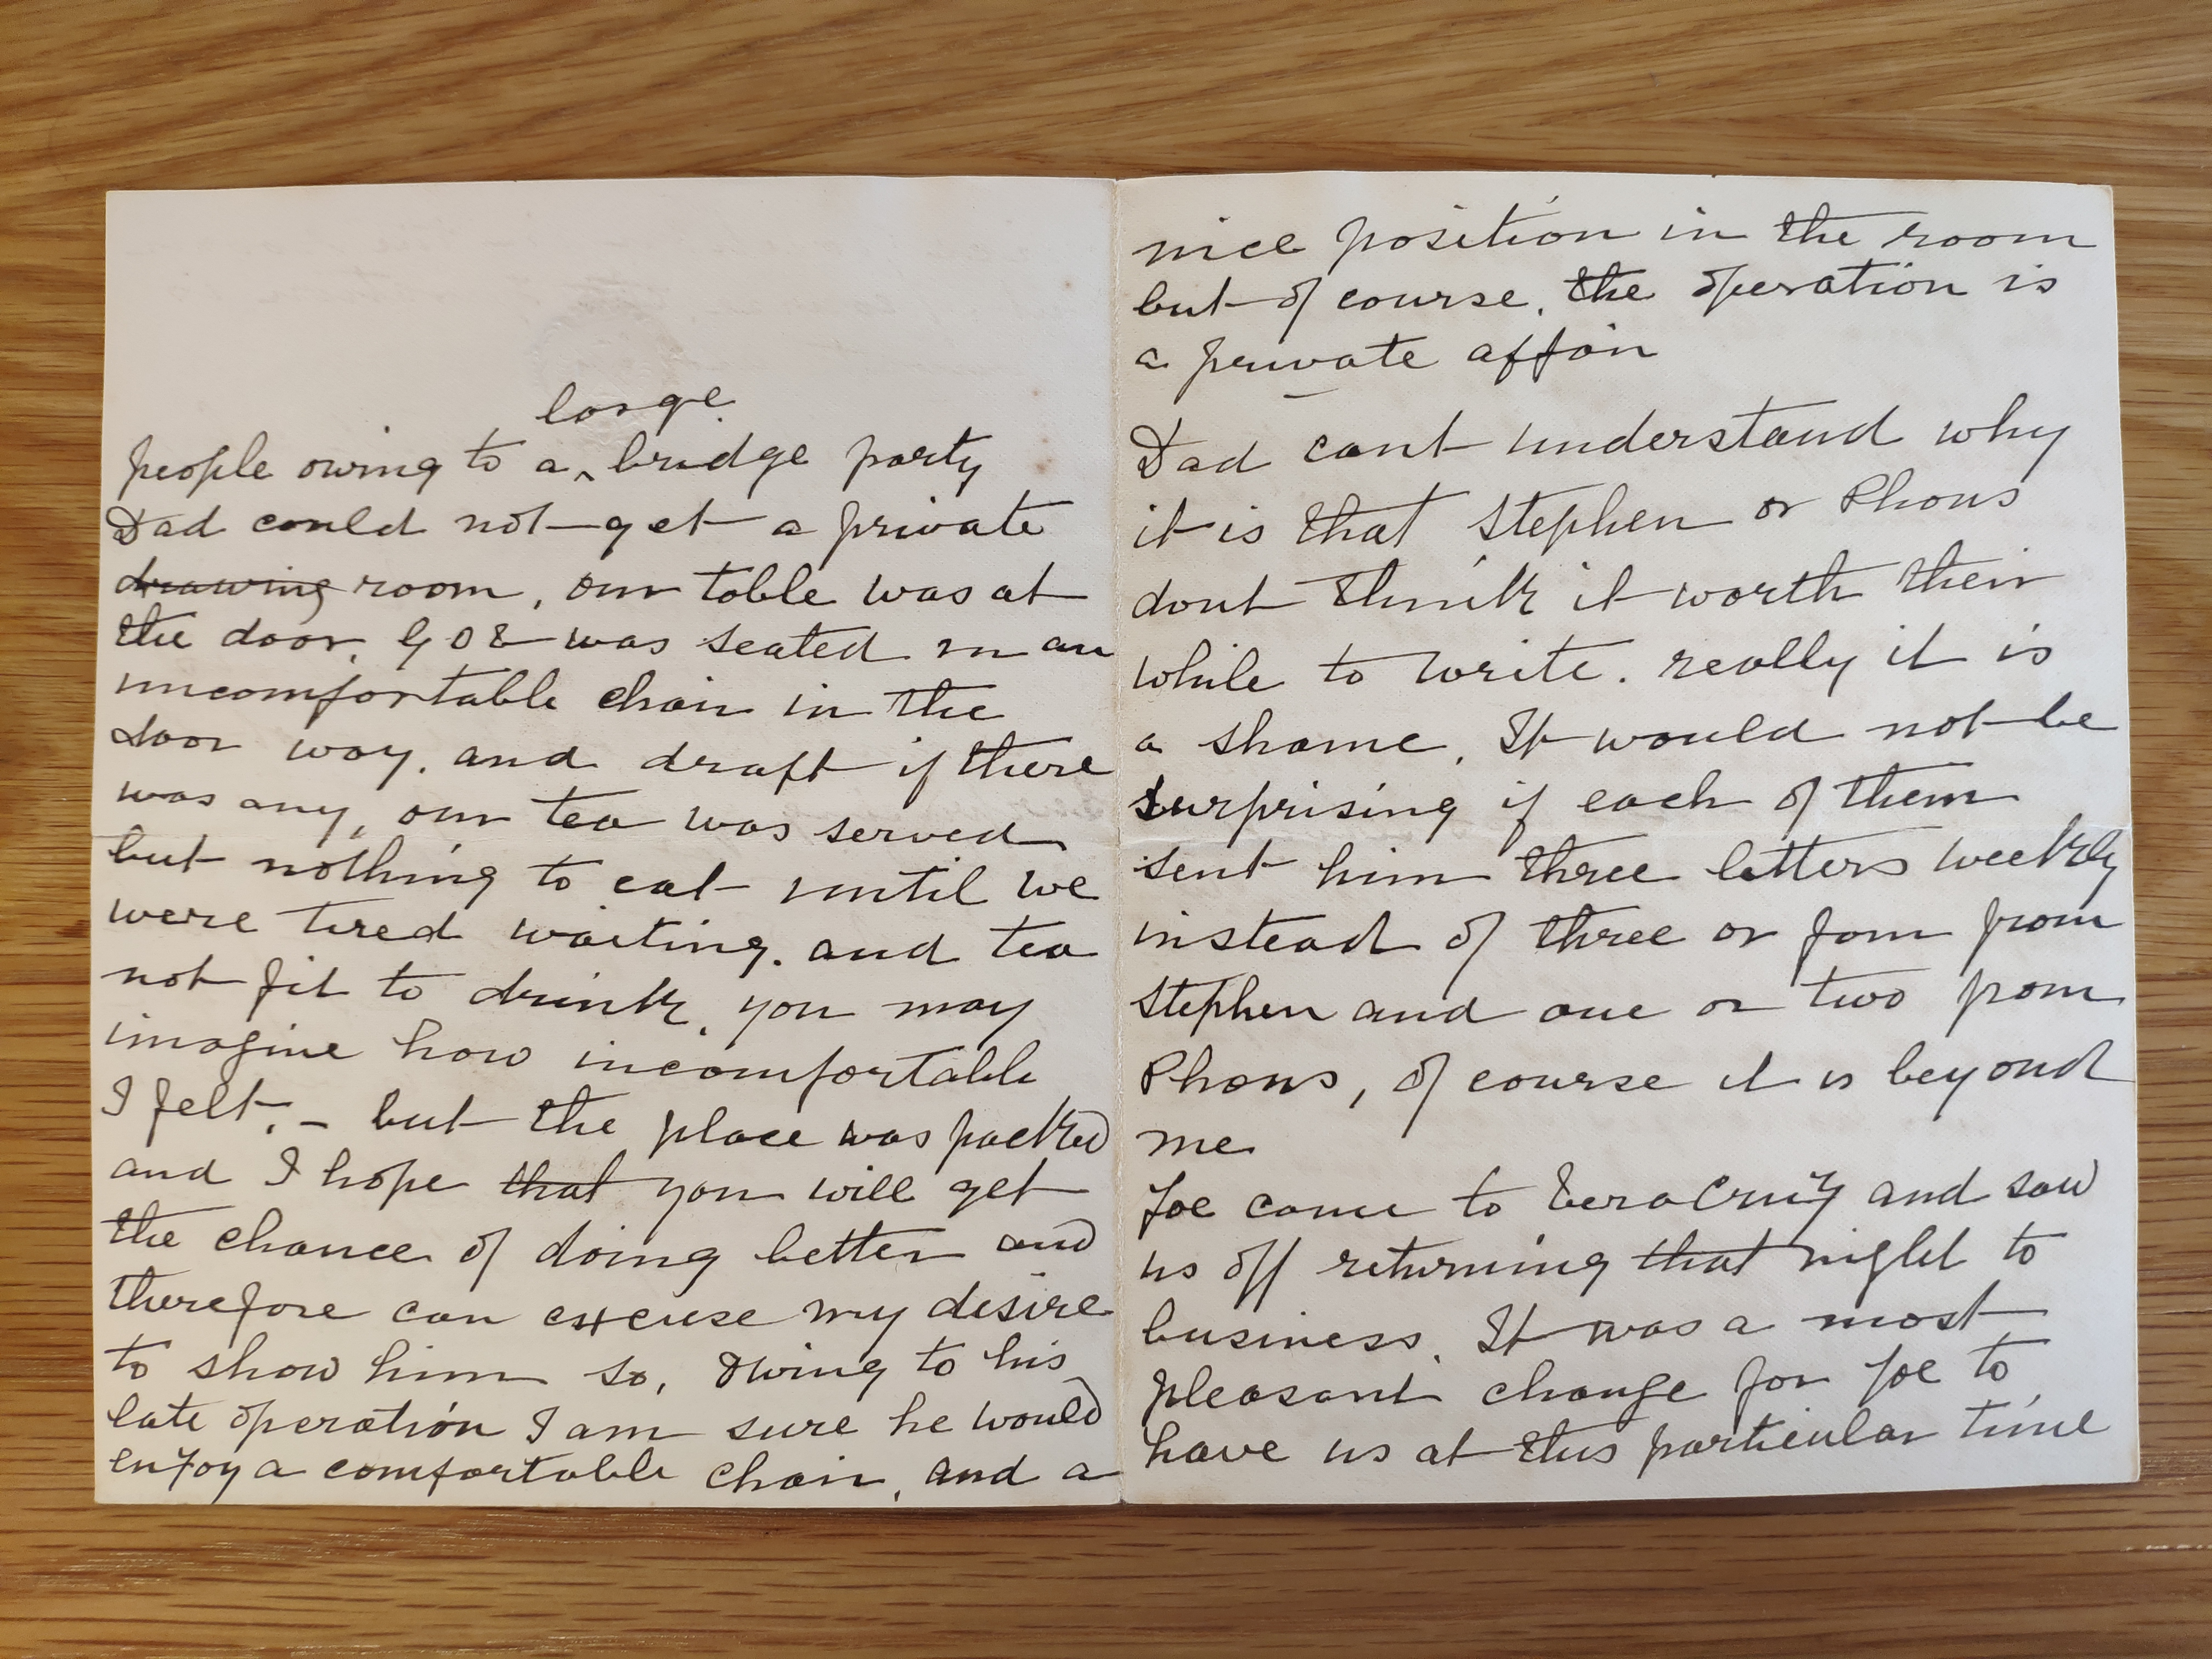 large
people owing to a ‸ bridge party
Dad could not get a private
drawing room, our table was at
the door, GOE was seated in an
uncomfortable chair in the
door way. and draft if there
was any, our tea was served
but nothing to eat until we
were tired waiting. and tea
not fit to drink, you may
imagine how incomfortable
I felt. – but the place was packed
and I hope that you will get
the chance of doing better and
therefore can excuse my desire
to show him so, Owing to his
late operation I am sure he would
enjoy a comfortable chair, and a
nice position in the room
but of course. the operation is
a private affair
Dad cant understand why
it is that Stephen or Phons
dont think it worth their
while to write. really it is
a shame. It would not be
surprising if each of them
sent him three letters weekly
instead of three or four from
Stephen and one or two from
Phons, of course it is beyond
me
Joe came to Vera Cruiz and saw
us off returning that night to
business. It was a most
pleasant change for Joe to
have us at this particular time